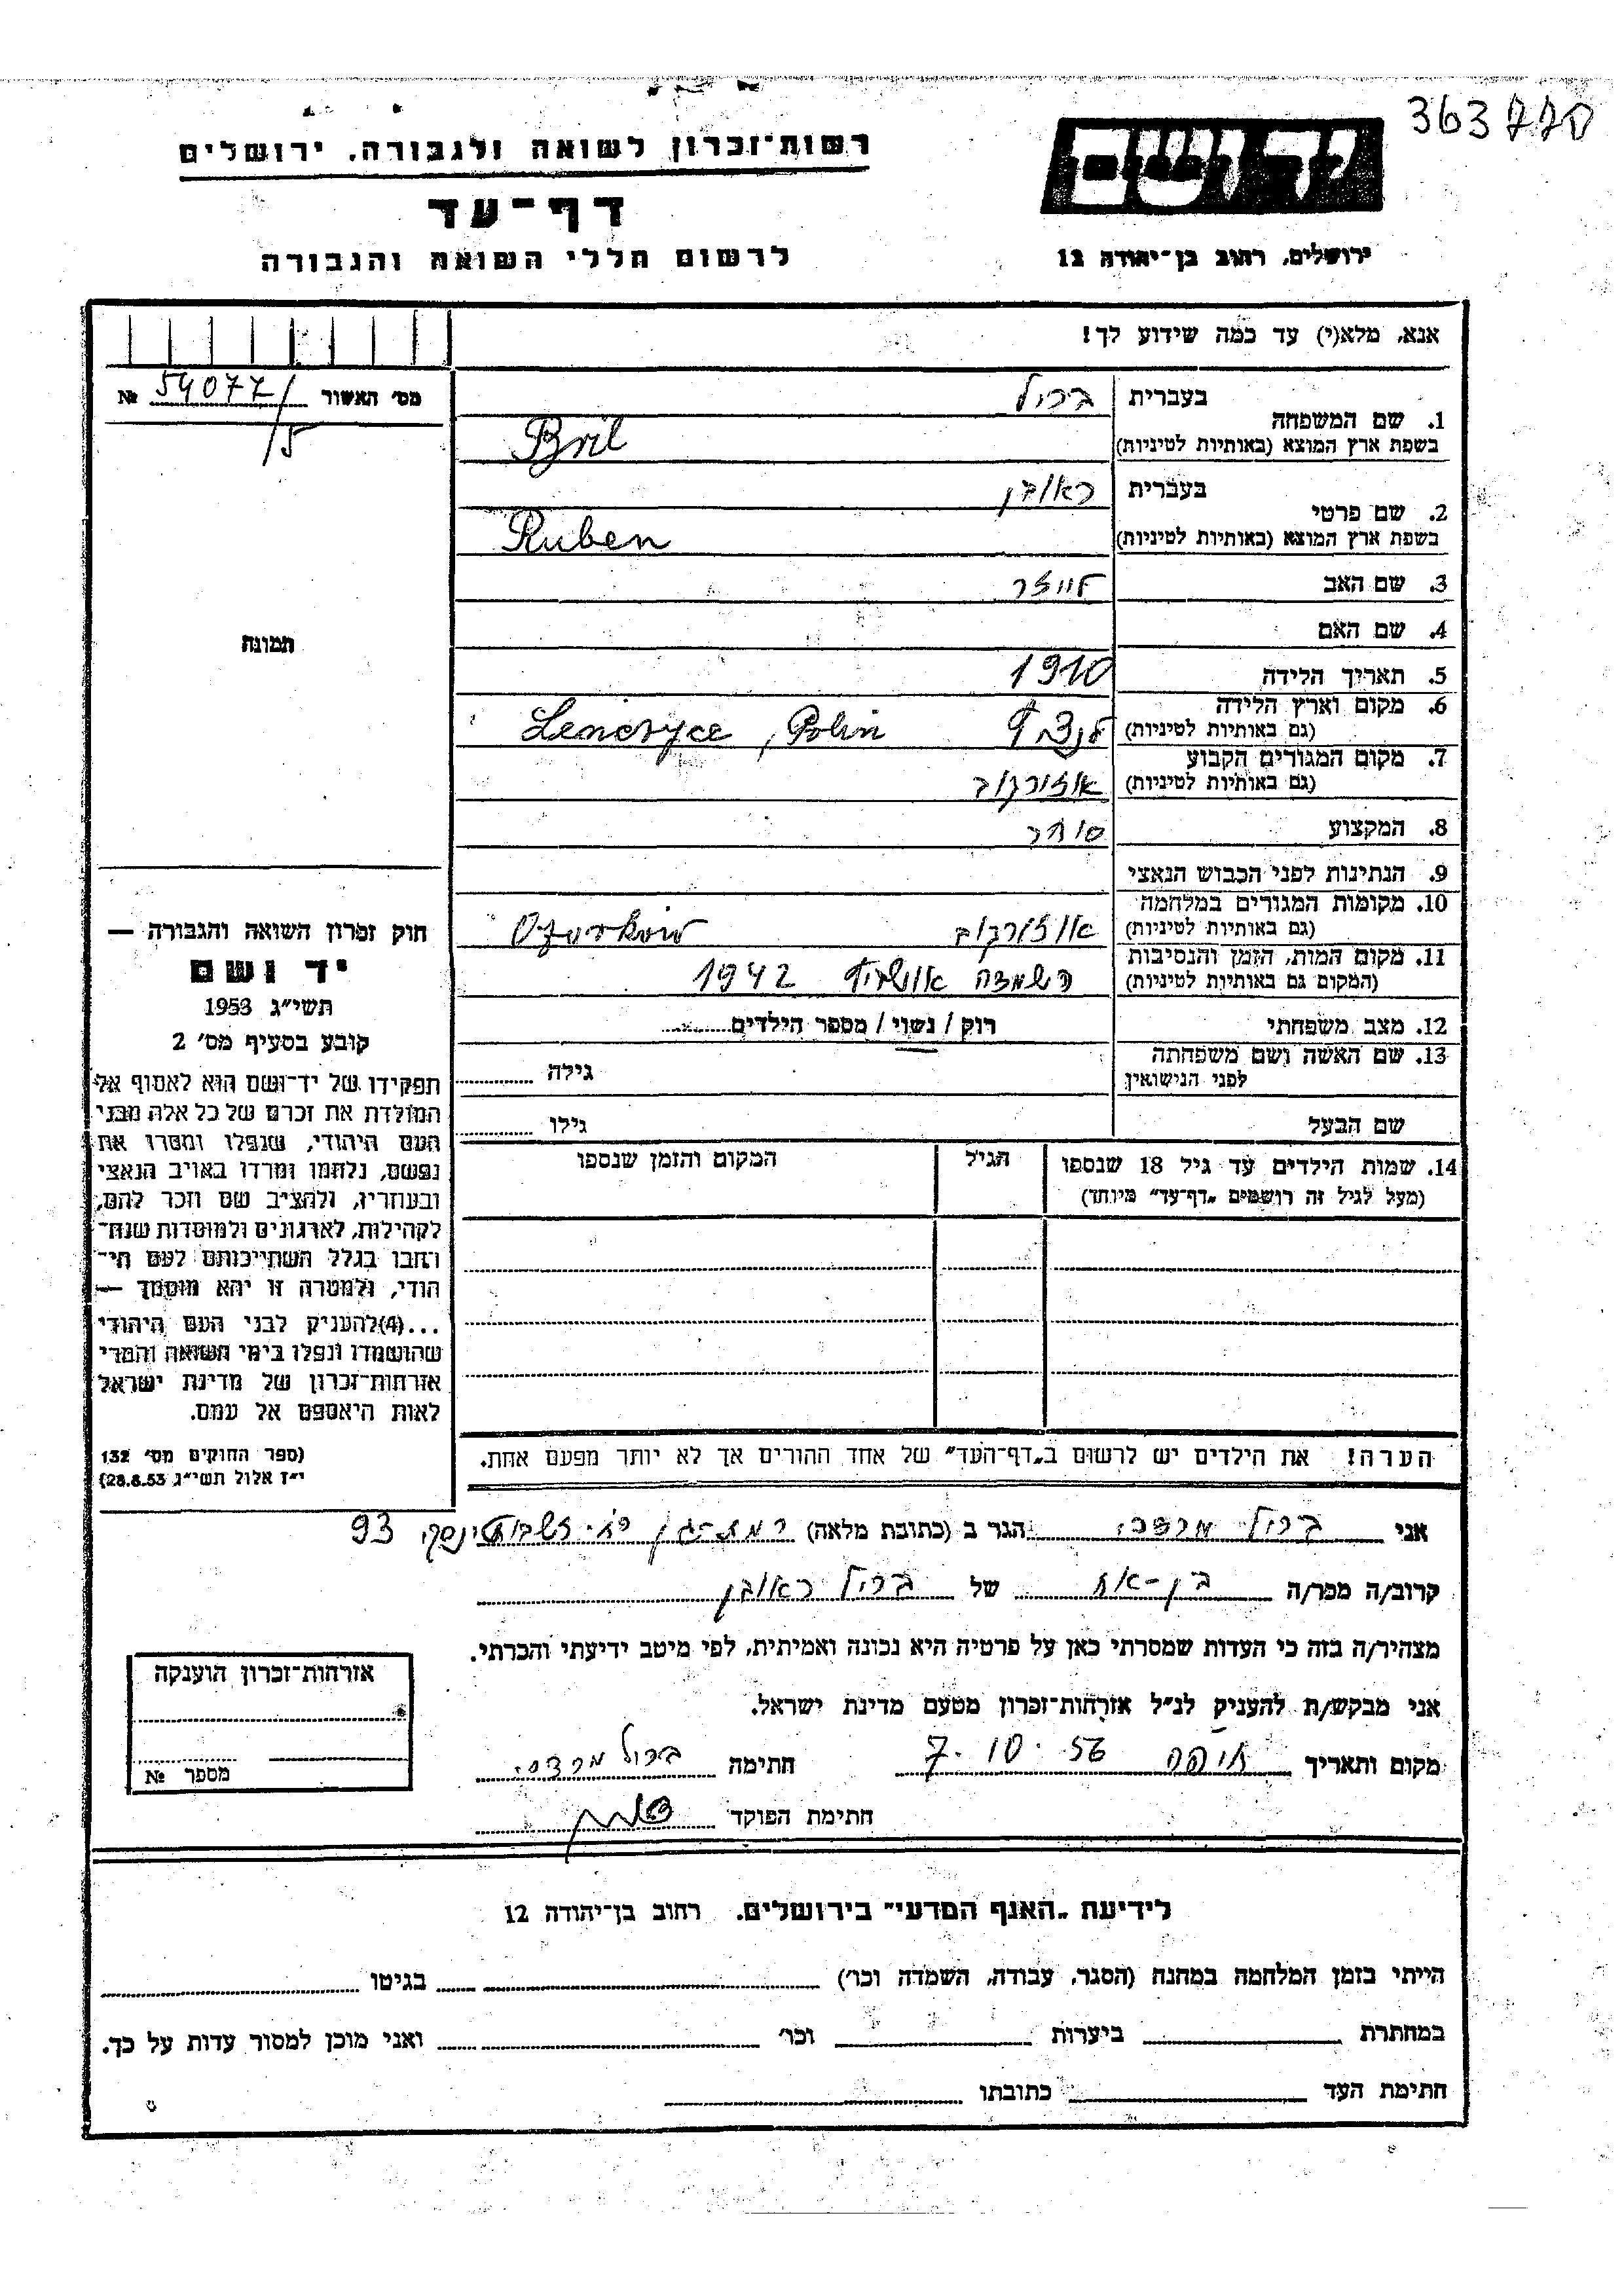 363770
רשות־זכרון לשואה ולגבורה, ירושלים
דף־עד
לרשום חללי השואה והגבורה
יד ושם
ירושלים, רחוב בן־יהודה 12
אנא, מלא(י) עד כמה שידוע לך!
מס׳ האשור 54077/5 №
1. שם המשפחה
בעברית בריל
בשפת ארץ המוצא (באותיות לטיניות) Bril
2. שם פרטי
בעברית ראובן
בשפת ארץ המוצא (באותיות לטיניות) Ruben
3. שם האב לייזר
4. שם האם
5. תאריך הלידה 1910
6. מקום וארץ הלידה
(גם באותיות לטיניות) Lenczyce, Polin
7. מקום המגורים הקבוע
(גם באותיות לטיניות) אוזורקוב
8. המקצוע סוחר
9. הנתינות לפני הכבוש הנאצי
10. מקומות המגורים במלחמה
(גם באותיות לטיניות) אוזורקוב Ozorków
11. מקום המות, הזמן והנסיבות
(המקום גם באותיות לטיניות) השמדה אושויץ 1942
12. מצב משפחתי רוק / נשוי / מספר הילדים
13. שם האשה ושם משפחתה
לפני הנישואין גילה
שם הבעל גילו
14. שמות הילדים עד גיל 18 שנספו הגיל המקום והזמן שנספו
(מעל לגיל זה רושמים „דף־עד” מיוחד)
תמונה
חוק זכרון השואה והגבורה —
יד ושם
תשי״ג 1953
קובע בסעיף מס׳ 2
תפקידו של יד־ושם הוא לאסוף אל
המולדת את זכרם של כל אלה מבני
העם היהודי, שנפלו ומסרו את
נפשם, נלחמו ומרדו באויב הנאצי
ובעוזריו, ולהציב שם וזכר להם,
לקהילות, לארגונים ולמוסדות שנח־
רחבו בגלל השתייכותם לעם הי־
הודי, ולמטרה זו יהא מוסמך —
...(4)להעניק לבני העם היהודי
שהושמדו ונפלו בימי השואה והמרי
אזרחות־זכרון של מדינת ישראל
לאות היאספם אל עמם.
(ספר החוקים מס׳ 132
י״ז אלול תשי״ג 28.8.53)
הערה! את הילדים יש לרשום ב„דף־העד” של אחד ההורים אך לא יותר מפעם אחת.
אני בריל מרדכי הגר ב (כתובת מלאה) רמת-גן רח׳ ז׳בוטינסקי 93
קרוב/ה מכר/ה בן-אח של בריל ראובן
מצהיר/ה בזה כי העדות שמסרתי כאן על פרטיה היא נכונה ואמיתית, לפי מיטב ידיעתי והכרתי.
אני מבקש/ת להעניק לנ״ל אזרחות־זכרון מטעם מדינת ישראל.
מקום ותאריך חיפה 7.10.56 חתימה בריל מרדכי
חתימת הפוקד
אזרחות־זכרון הוענקה
מספר №
לידיעת „האגף המדעי” בירושלים. רחוב בן־יהודה 12
הייתי בזמן המלחמה במחנה (הסגר, עבודה, השמדה וכו׳) בגיטו
במחתרת ביערות וכו׳ ואני מוכן למסור עדות על כך.
חתימת העד כתובתו